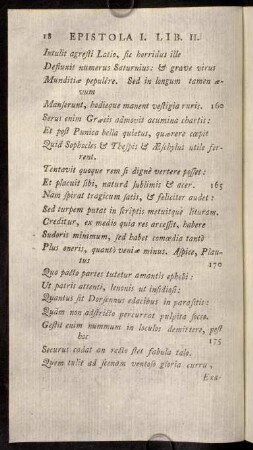 18 EPISTOLA I. LIB. II.
Intulit agresti Latio. sic horridus ille
Defluxit numerus Saturnius: & grave virus
Munditiæ populêre. Sed in longum tamen æ-
vum
Manserunt, hodieque manent vestigia ruris. 160
Serus enim Græcis admovit acumina chartis:
Et post Punica bella quietus, quærere cœpit
Quid Sophocles & Thespis & Æschylus utile fer-
rent.
Tentavit quoque rem si dignè vertere posset:
Et placuit sibi, naturâ sublimis & acer. 165
Nam spirat tragicum satis, & feliciter audet:
Sed turpem putat in scriptis metuitque lituram.
Creditur, ex medio quia res arcessit, habere
Sudoris minimum, sed habet comœdia tantò
Plus oneris, quantò veniæ minus. Aspice, Plau-
tus 170
Quo pacto partes tutetur amantis ephebi:
Ut patris attenti, lenonis ut insidiosi:
Quantus sit Dorsennus edacibus in parasitis:
Quàm non adstricto percurrat pulpita socco.
Gestit enim nummum in loculos demittere, post
hoc 175
Securus cadat an recto stet fabula talo.
Quem tulit ad scenam ventoso gloria curru,
Exa-